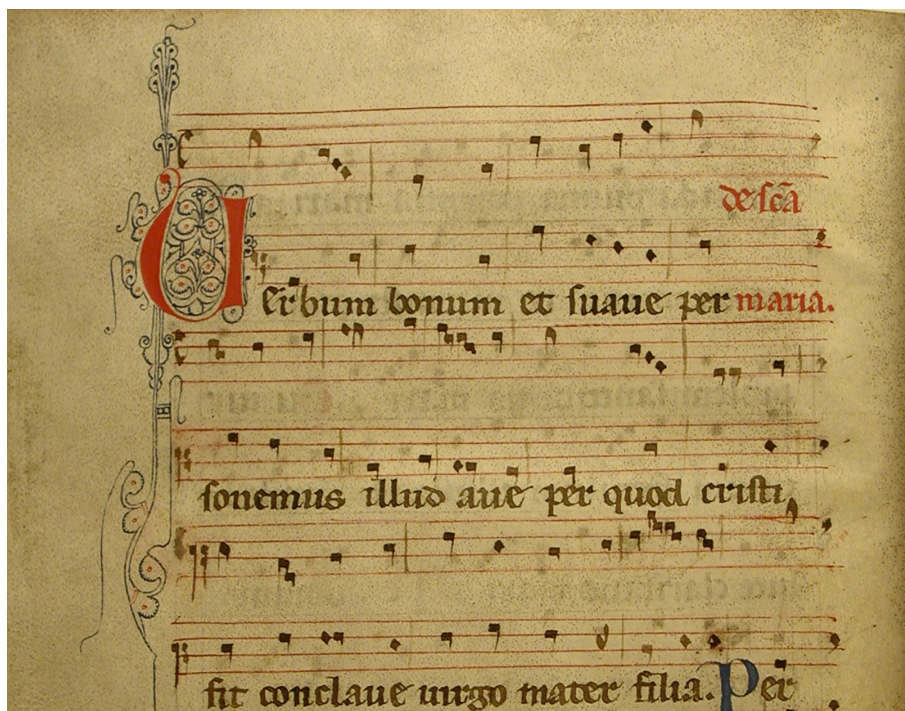 de scã
Uerbum bonum et suaue per maria.
sonemus illud aue per quod cristi
fit conclaue uirgo mater filia. Per